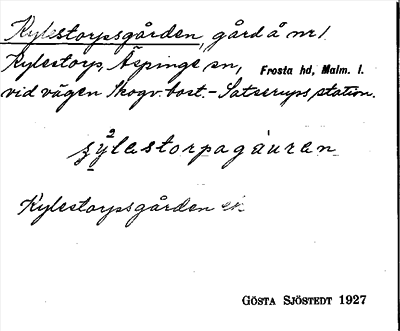 Kylestorpsgården, gård å nr 1
Kylestorp, Äspinge sn, Frosta hd, Malm. l.
vid vägen Skogv.bost. - Satserups station.
Kylestorpsgården ek.
GÖSTA SJÖSTEDT 1927